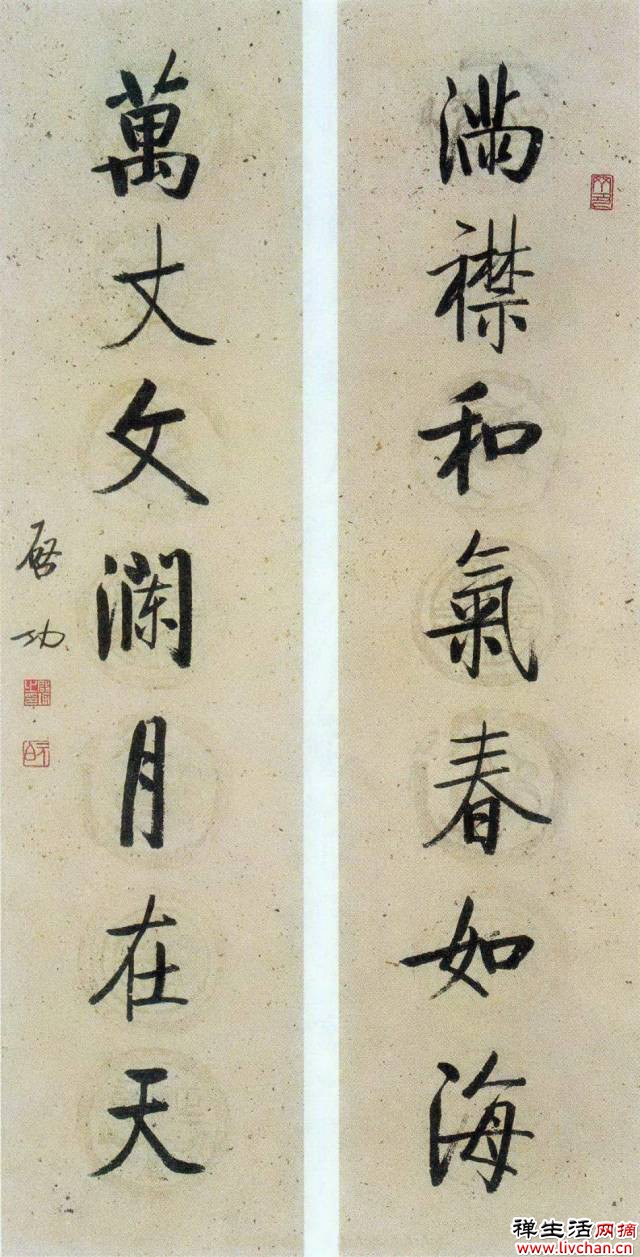 滿襟和氣春如海
萬丈文瀾月在天
啓功
禅生活网摘
www.livchan.cn